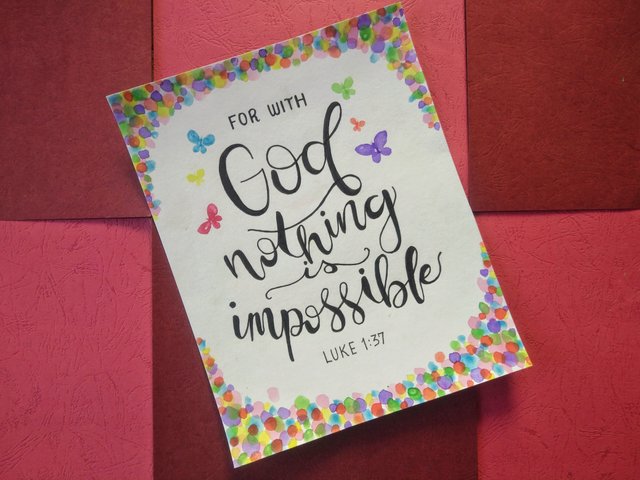 FOR WITH
God
nothing
is
impossible
LUKE 1:37